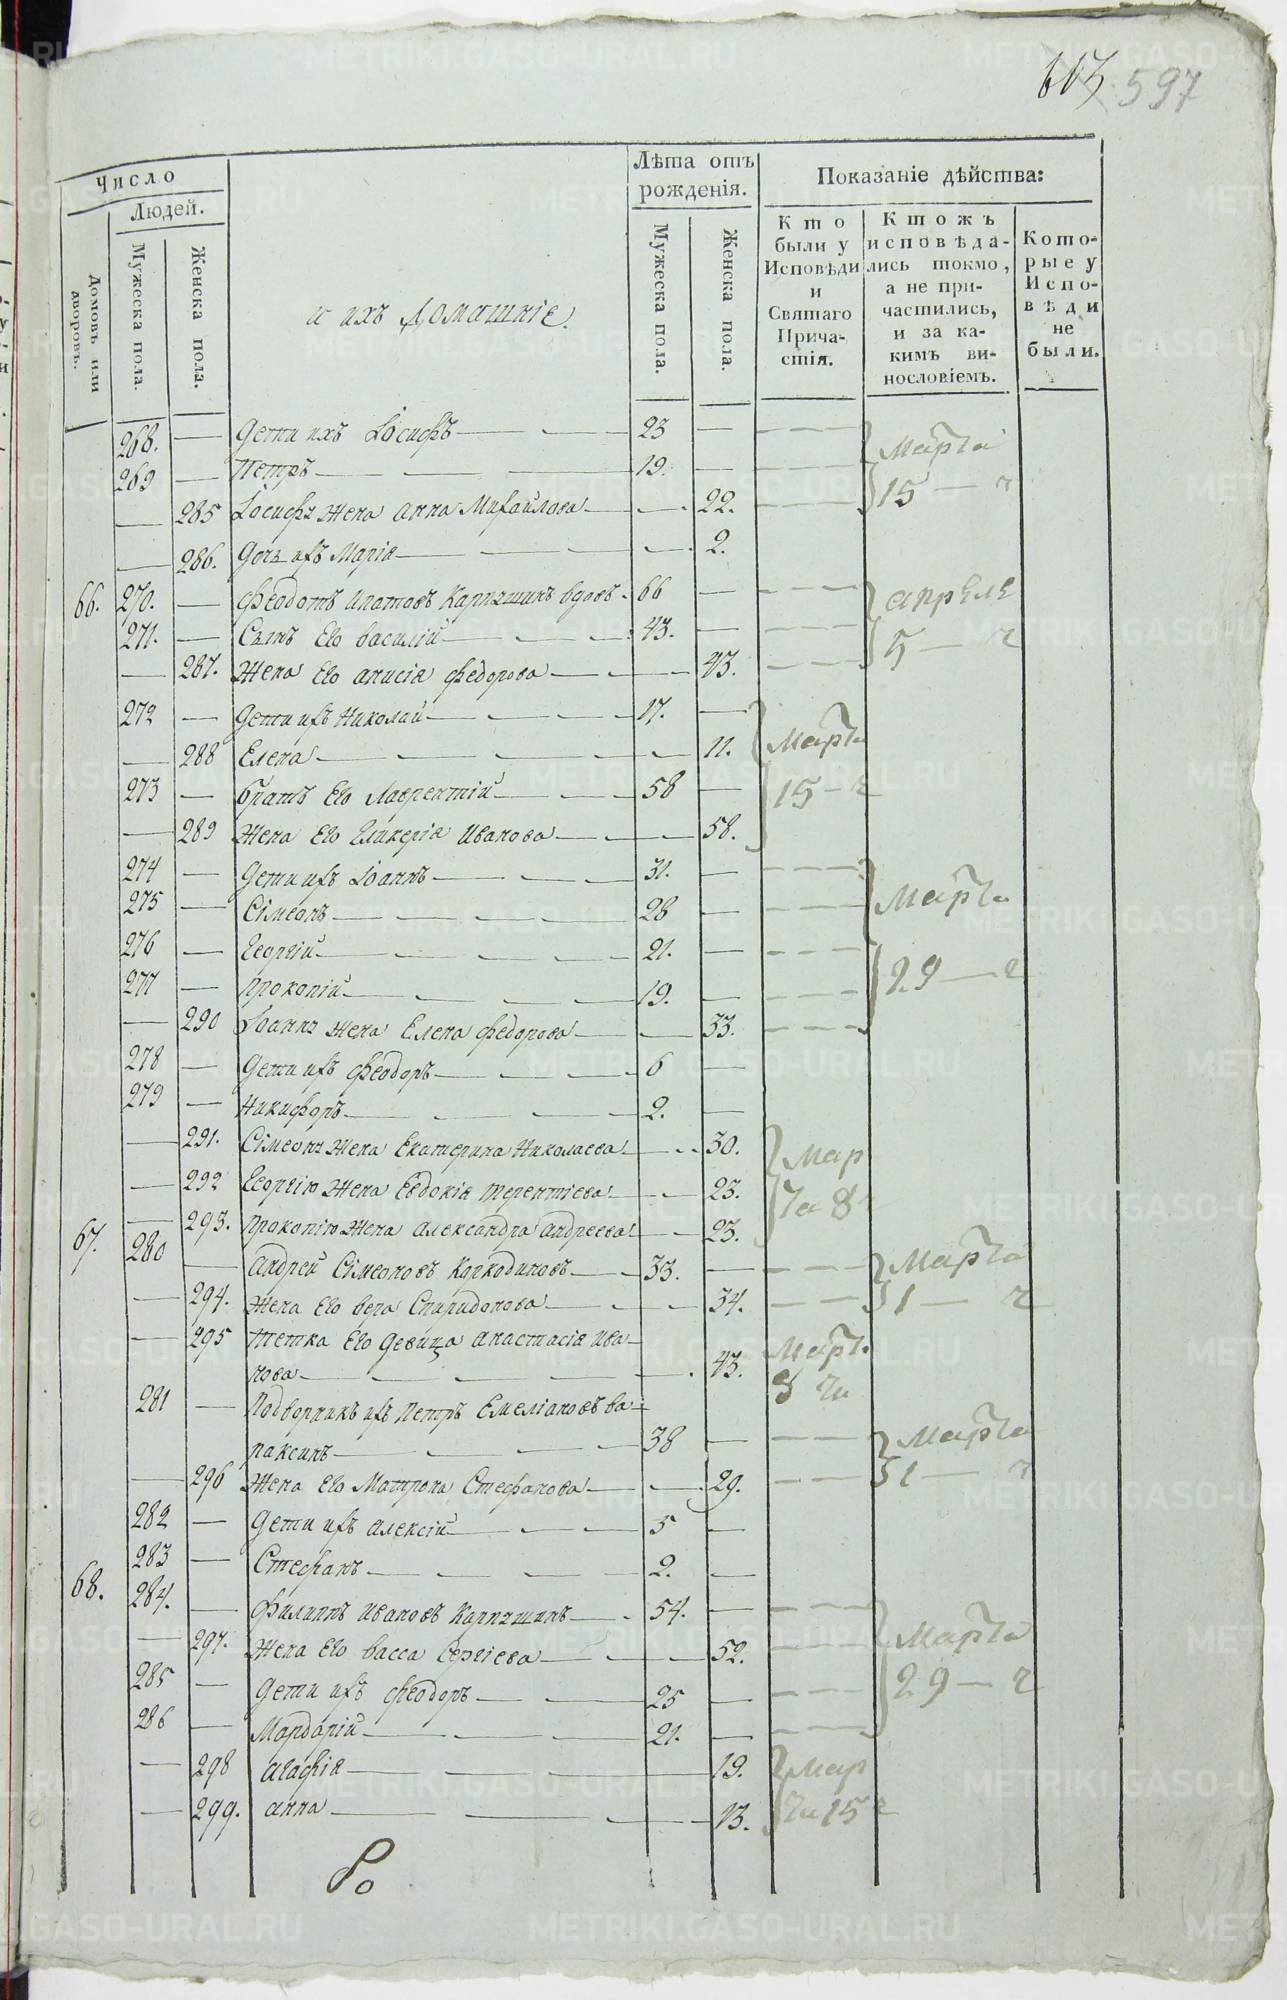 597
Число
Людей.
Домовъ или дворовъ.
Мужеска пола.
Женска пола.
и ихъ домашніе.
Лѣта отъ рожденія.
Мужеска пола.
Женска пола.
Показаніе дѣйства:
Кто были у Исповѣди и Святаго Причастія.
Ктожъ исповѣдались токмо, а не причастились, и за какимъ винословіемъ.
Которые у Исповѣди не были.
268. — Дети ихъ Іосифъ — 23 — Марта
269 — Петръ — 19. — 15 — ч
— 285 Іосифу жена Анна Михайлова — 22.
— 286. Дочь ихъ Марія — 2.
66. 270. — Феодотъ Ипатовъ Карпушинъ вдовъ. 66 — апреле
271. — Сынъ Его Василій — 43. — 5 — ч
— 287. Жена Его Анисія Федорова — 43.
272 — Дети ихъ Николай — 17. —
— 288 Елена — 11. Марта
273 — братъ Его Лаврентій — 58 — 15 — ч
— 289 Жена Его Гликерія Иванова — 58.
274 — Дети ихъ Іоаннъ — 31. —
275 — Сімеонъ — 28 — Марта
276 — Георгій — 21. —
277 — Прокопій — 19. — 29 — ч
— 290 Іоанну жена Елена Федорова — 33.
278 — Дети ихъ Феодоръ — 6 —
279 — Никифоръ — 2. —
— 291. Сімеону жена Екатерина Николаева — 30. Мар
— 292 Георгію жена Евдокія Терентіева — 23. та 8 ч
— 293. Прокопію жена Александра Андреева — 23.
67. 280 — Андрей Сімеоновъ Коркодиновъ — 33. — Марта
— 294. Жена Его Вера Спиридонова — 34. 1 — ч
— 295 Тетка Его девица Анастасія Ива-
нова — 43. Марта
8 ч
281 — Подворникъ ихъ Петръ Емеліановъ Ва-
паксинъ — 38 — Марта
— 296 Жена Его Матрона Стефанова — 29. 1 — ч
282 — Дети ихъ Алексій — 5 —
283 — Стефанъ — 2. —
68. 284. — Филиппъ Ивановъ Карпушинъ — 54. —
— 297. Жена Его Васса Сергіева — 52. Марта
285 — Дети ихъ Феодоръ — 25 — 29 — ч
286 — Мардарій — 21. —
— 298 Агафія — 19. Мар
— 299. Анна — 13. та 15 ч